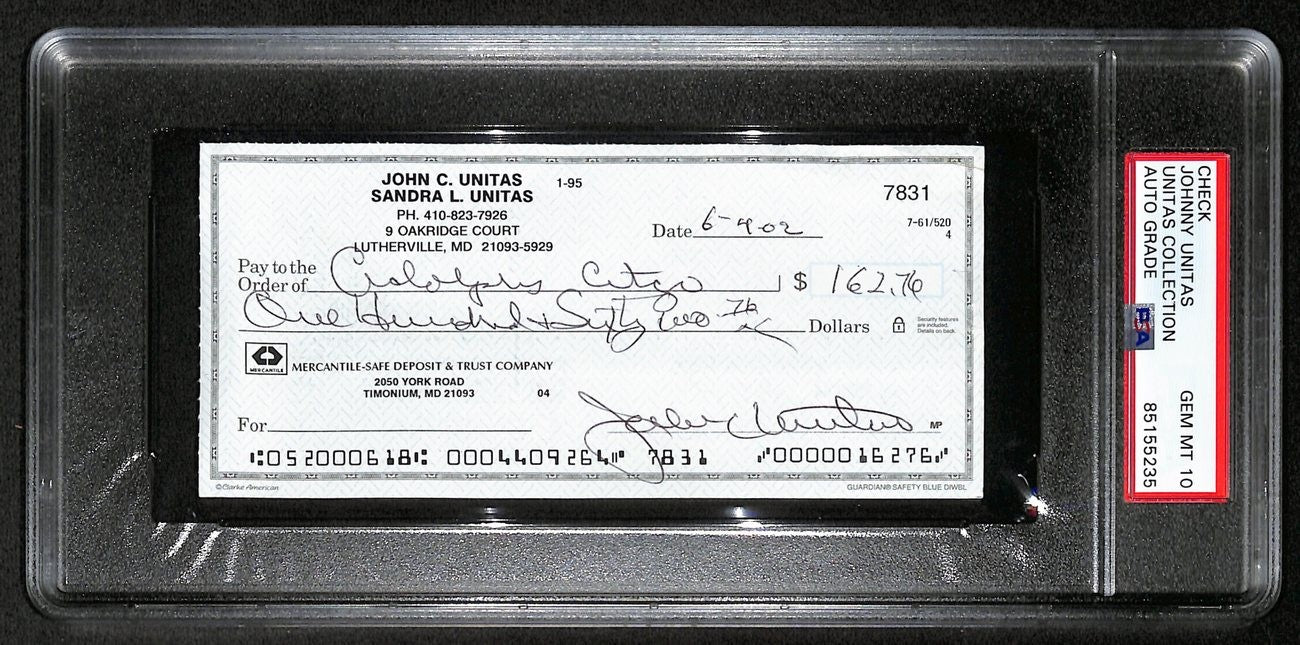 JOHN C. UNITAS 1-95
SANDRA L. UNITAS
PH. 410-823-7926
9 OAKRIDGE COURT
LUTHERVILLE, MD 21093-5929
7831
7-61/520
4
Date 6-4-02
Pay to the
Order of Citgo $ 162.76
One Hundred + Sixty Two 76 Dollars
Security features
are included.
Details on back.
MERCANTILE
MERCANTILE-SAFE DEPOSIT & TRUST COMPANY
2050 YORK ROAD
TIMONIUM, MD 21093 04
For John Unitas MP
⑆052000618⑆ 0004409264⑈ 7831 ⑈0000016276⑈
©Clarke American GUARDIAN® SAFETY BLUE DIWBL
CHECK
JOHNNY UNITAS
UNITAS COLLECTION
AUTO GRADE GEM MT 10
85155235
PSA